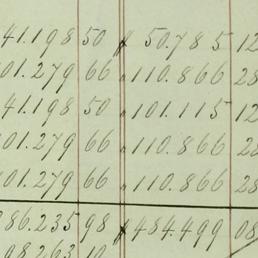 41.198 50 " 50.785 12
01.279 66 " 110.866 28
41.198 50 " 101.115 12
01.279 66 " 110.866 28
01.279 66 " 110.866 28
86.235 98 $ 484.499 08
98.263 10